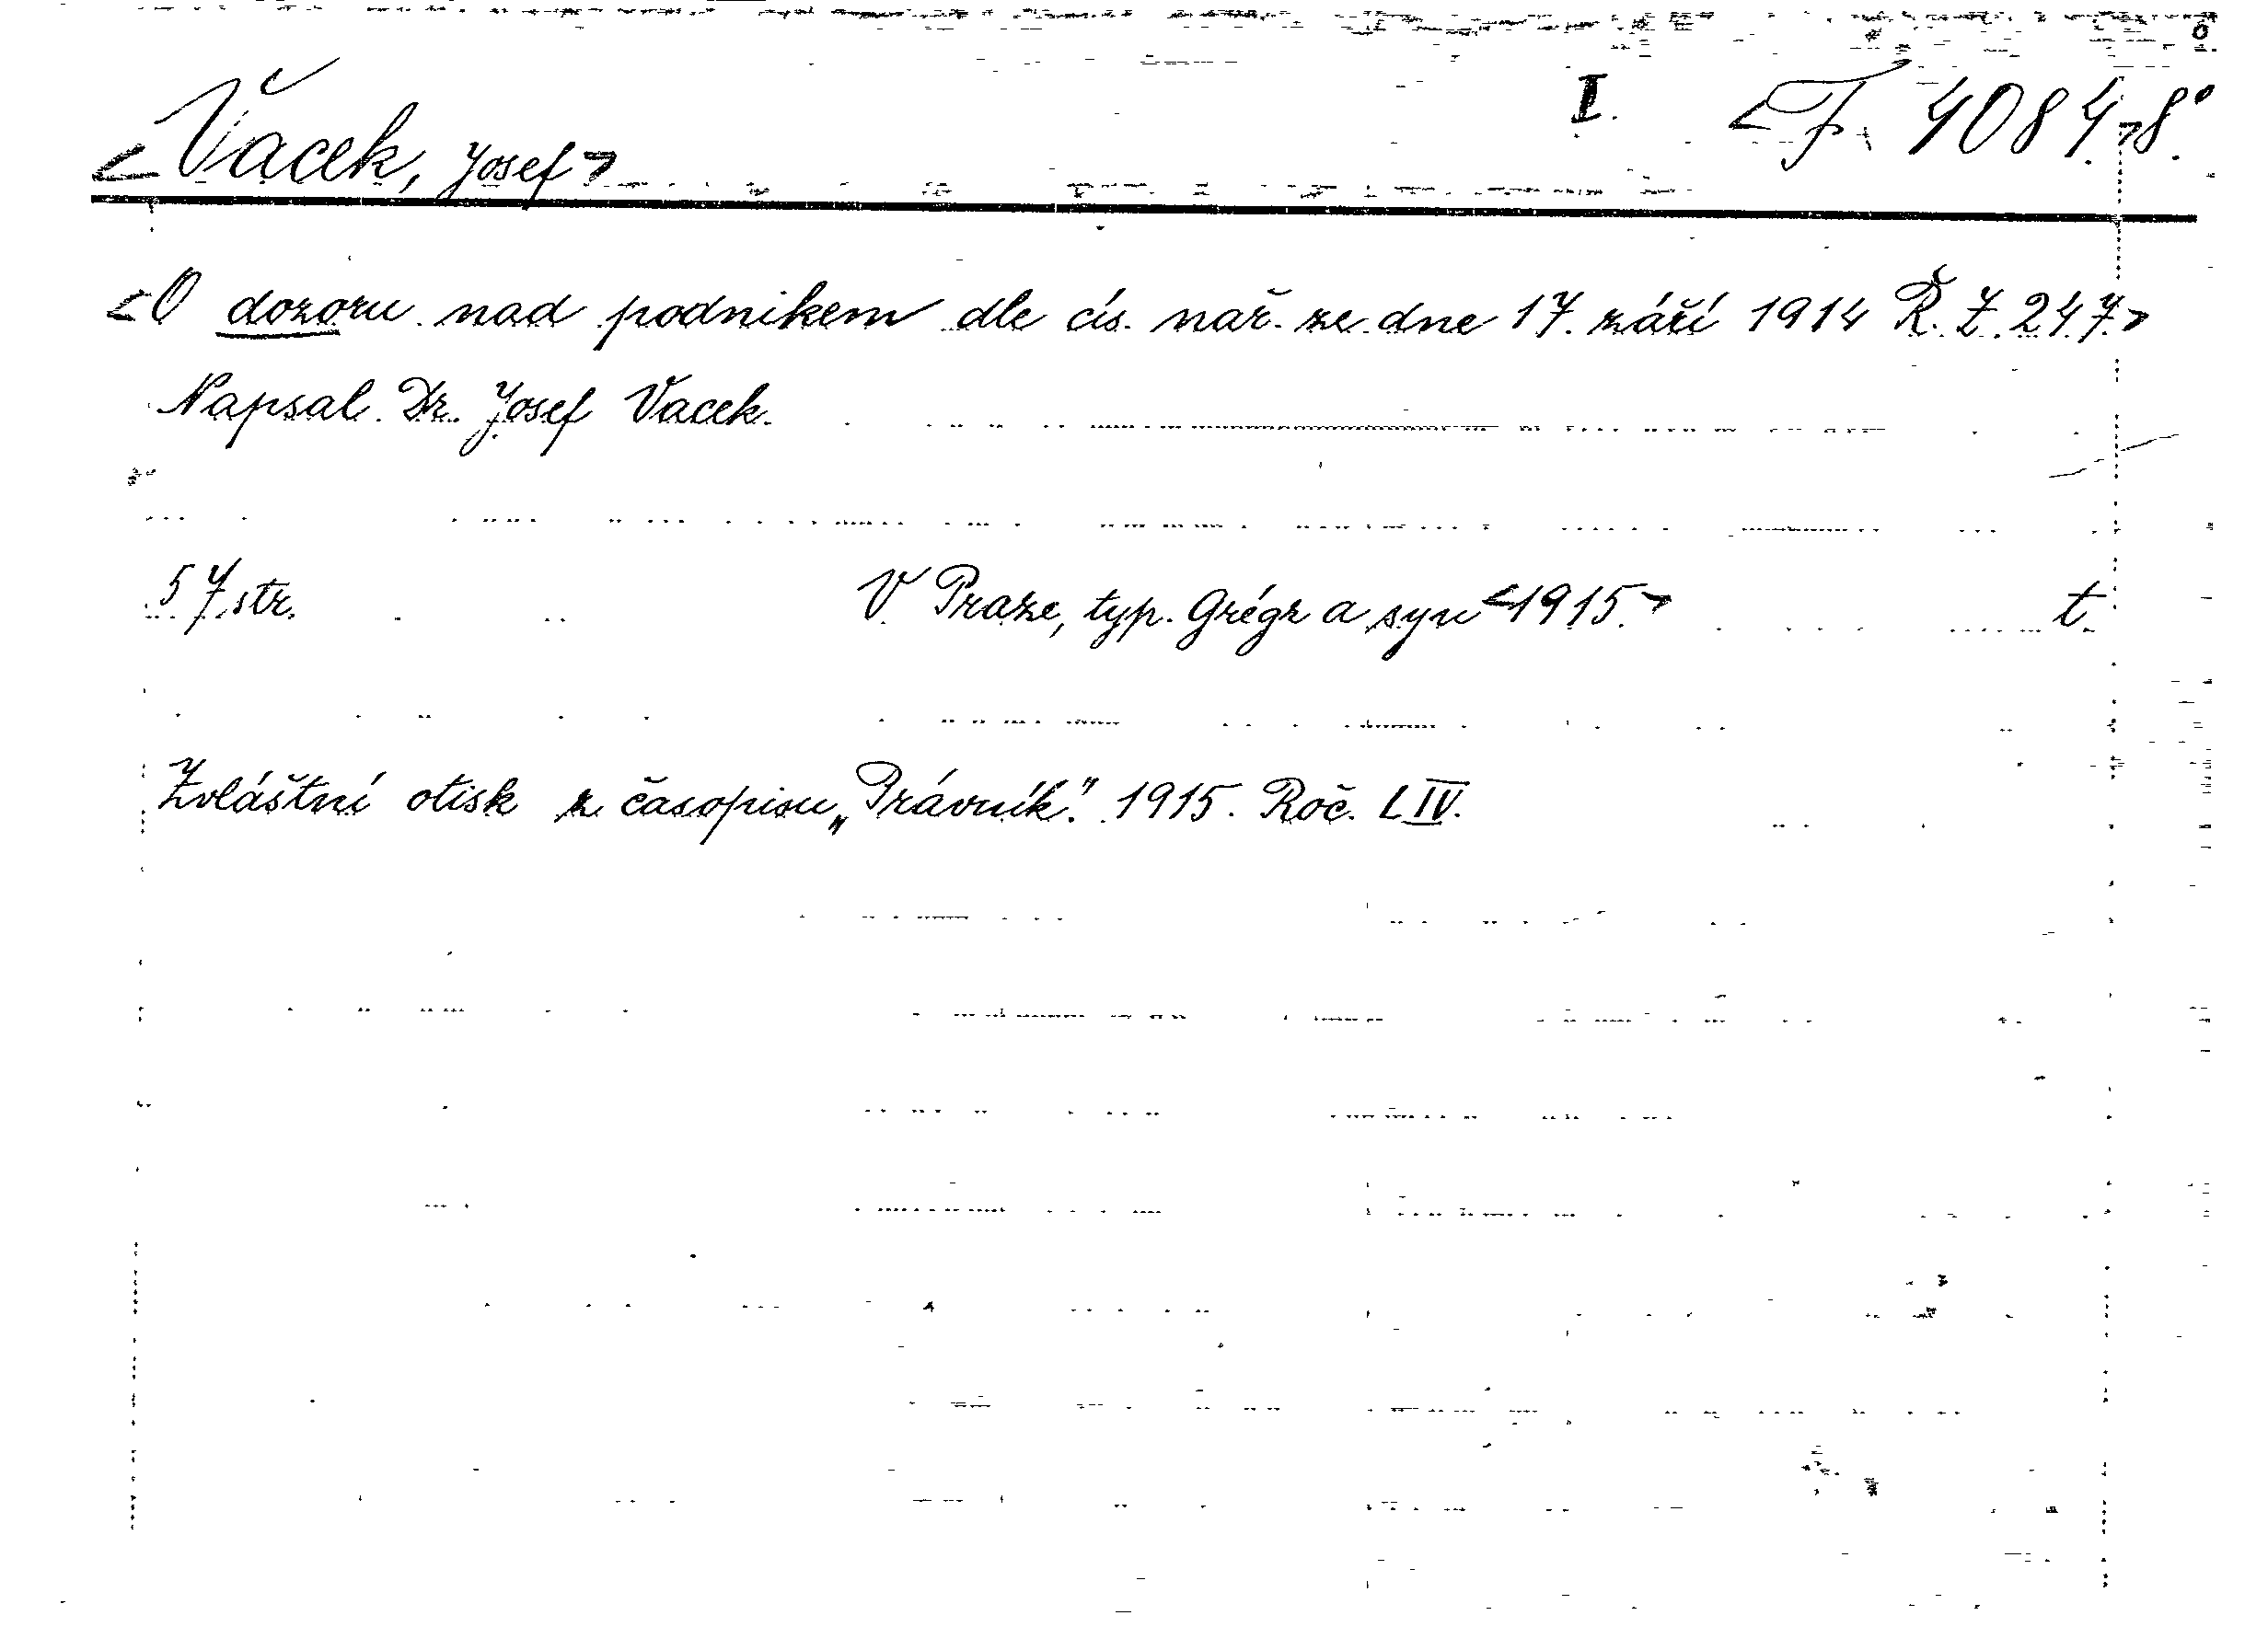 <Vacek, Josef> I. <F. 4084>8°.
<O dozoru nad podnikem dle cís. nař. ze dne 17. září 1914 Ř. Z. 247.>
Napsal Dr. Josef Vacek.
57 str. V Praze, typ. Grégr a syn <1915.> t.
Zvláštní otisk z časopisu „Právník." 1915. Roč. LIV.